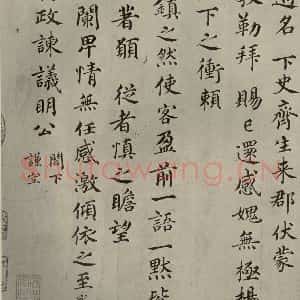 名 下史齊生来郡伏蒙
教勒拜賜已還感媿無極楊
下之衝賴
鎮之然使客盈前一語一默皆
者願 從者慎之瞻望
闌卑情無任感激傾依之至
政諫議明公 閤下
謹空
Shufawang.CN